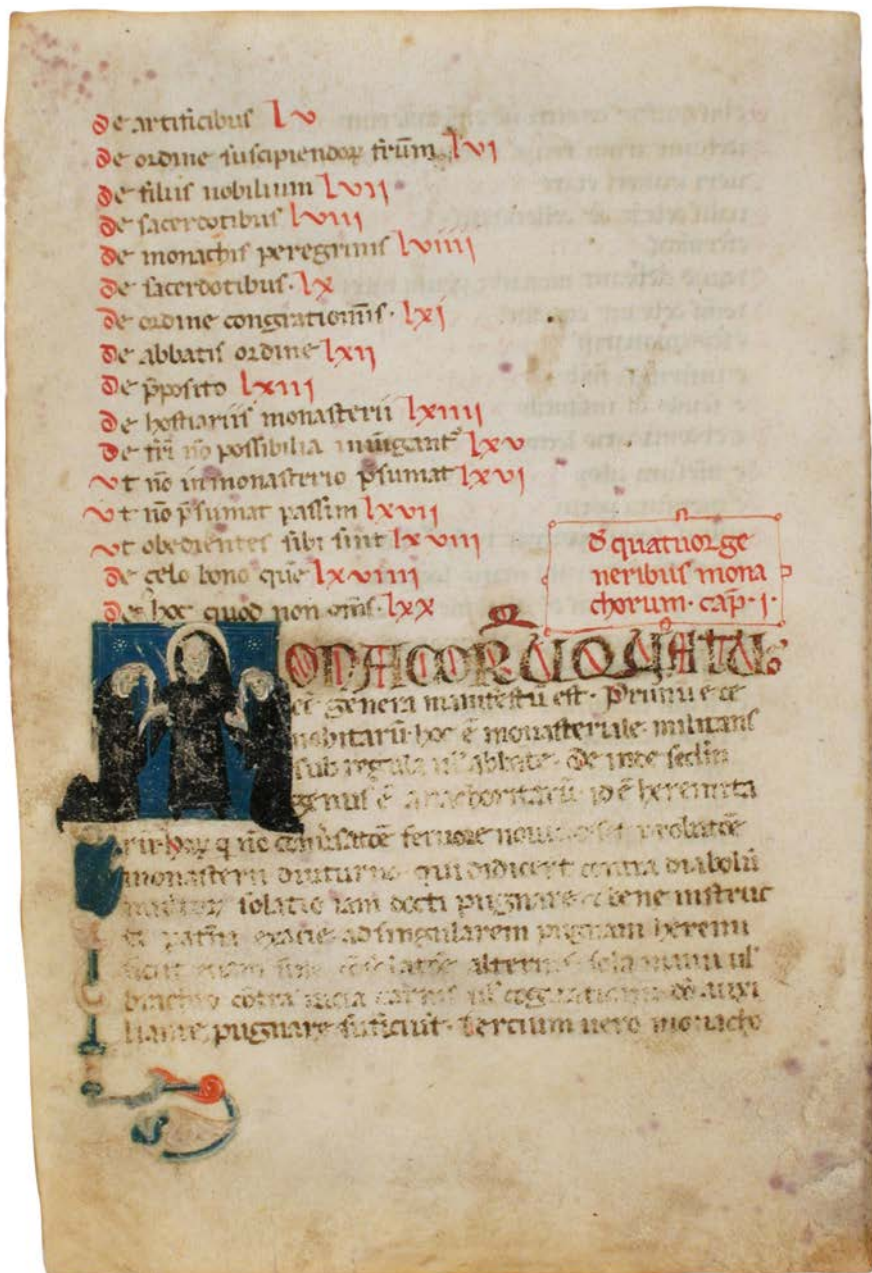 De artificibus lv
De ordine suscipiendoꝝ fr̄um lvi
De filiis nobilium lvii
De sacerdotibus lviii
De monachis peregrinis lviiii
De sacerdotibus · lx
De ordine congr̄ationis · lxi
De abbatis ordine lxii
De p̄posito lxiii
De hostiariis monasterii lxiiii
De fr̄i nō possibilia lxv
Vt nō in monasterio p̄sumat lxvi
Vt nō p̄sumat passim lxvii
Vt obedientes sibi sint lxviii
De çelo bono que lxviiii
De hoc quod non om̄s · lxx
đ quatuor ge
neribus mona
chorum · cap̄ · i ·
MONACORŪ QUATU
genera manifestū est · Primū
nobitarū · hoc ē monasteriale militans
sub regula ul' abbate · De
genus ē anachoritarū · id ē heremita
feruore
monasterii diuturna · qui didicert contra diabolū
solatio iam docti pugnare · bene instruc
ad singularem pugnam heremi
alterius sola manu ul'
brachio cōtra uicia carnis ul' cogitationū auxi
liante pugnare suficiūt · Tercium uero monacho